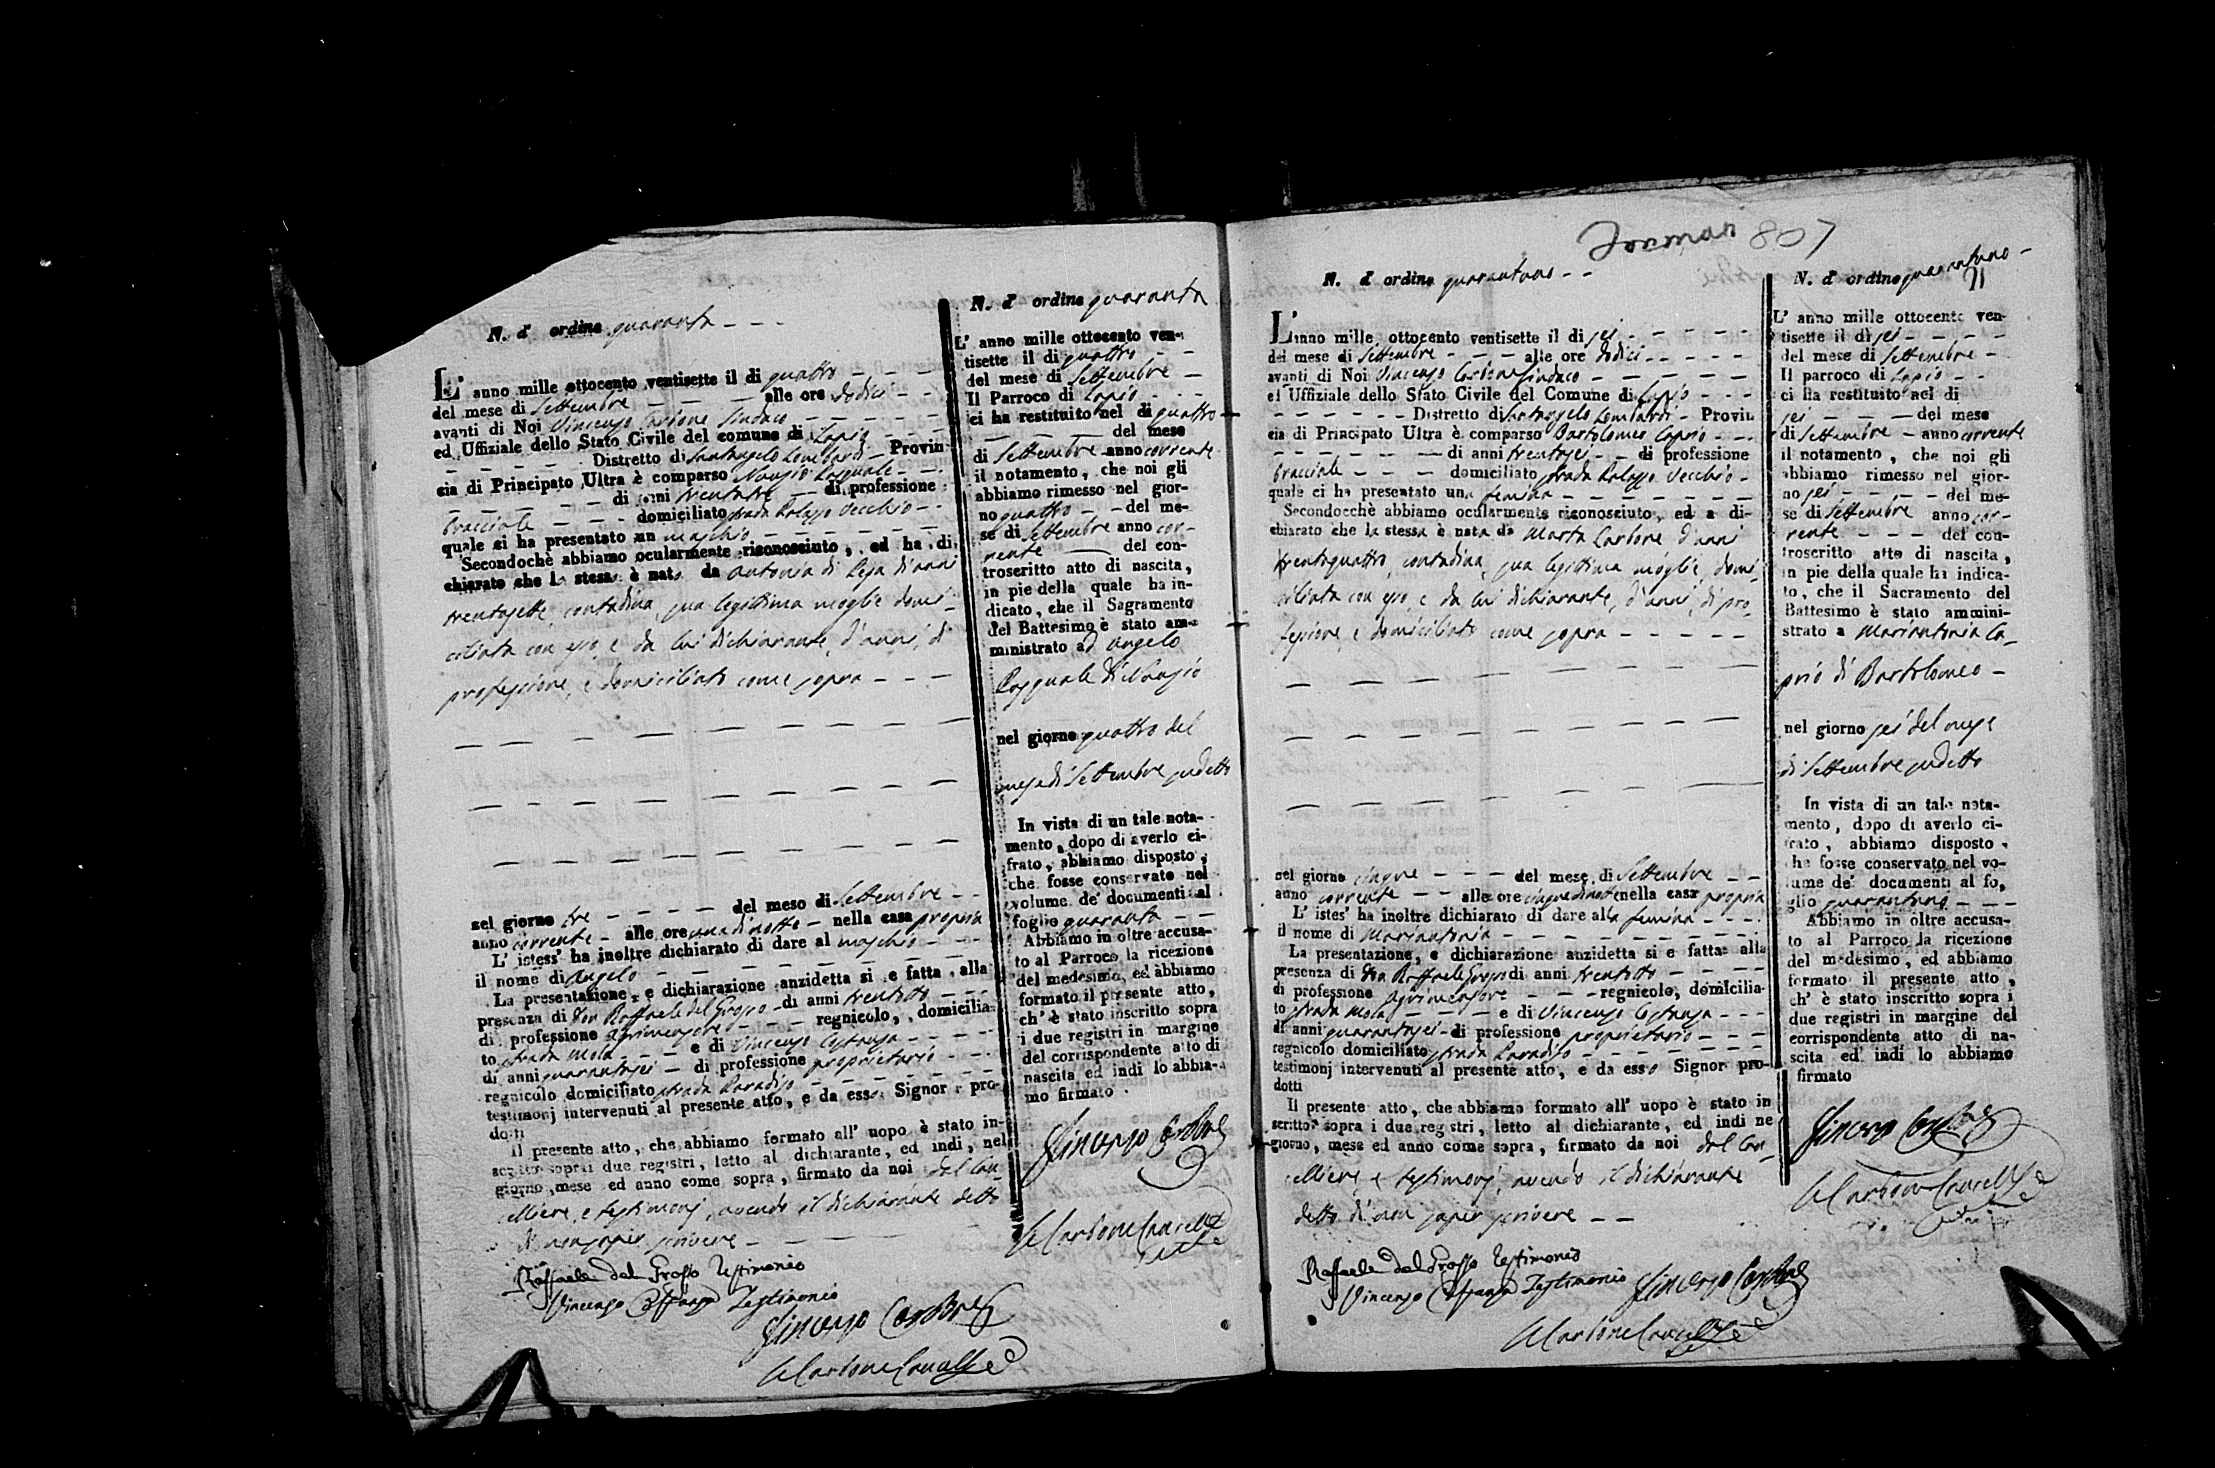 N. d' ordine quaranta
L' anno mille ottocento ventisette il di quattro
del mese di Settembre alle ore dodici
avanti di Noi Vincenzo Carbone Sindaco
ed Uffiziale dello Stato Civile del comune di Lapio
Distretto di Santangelo Lombardi Provin
cia di Principato Ultra è comparso Nunzio Pasquale
di anni trentatre di professione
bracciale domiciliato strada Palazzo Vecchio
quale ci ha presentato un maschio
Secondochè abbiamo ocularmente riconosciuto, ed ha di
chiarato che lo stesso è nato da Antonia di Peja d'anni
trentasette, contadina, sua legittima moglie domi-
ciliata con esso, e da lui dichiarante, d'anni, di
professione, e domiciliato come sopra
nel giorno tre del meso di Settembre
anno corrente alle ore una di notte nella casa propria
L' istess' ha inoltre dichiarato di dare al maschio
il nome di Angelo
La presentazione, e dichiarazione anzidetta si e fatta alla
presenza di Don Raffaele del Grosso di anni trentotto
di professione agrimensore regnicolo, domicilia-
to strada Mola e di Vincenzo
di anni quarantasei di professione proprietario
regnicolo domiciliato strada Paradiso
testimonj intervenuti al presente atto, e da esso Signor pro-
dotti
Il presente atto, che abbiamo formato all' uopo è stato in-
scritto sopra i due registri, letto al dichiarante, ed indi, nel
giorno, mese ed anno come sopra, firmato da noi dal Can-
celliere, e testimonj, avendo il dichiarante detto
di non saper scrivere
Raffaele del Grosso Testimonio
Vincenzo Testimonio
Vincenzo Carbone
Carbone Cancelliere
N. d' ordine quaranta
L' anno mille ottocento ven-
tisette il di quattro
del mese di Settembre
Il Parroco di Lapio
ci ha restituito nel di quattro
del mese
di Settembre anno corrente
il notamento, che noi gli
abbiamo rimesso nel gior-
no quattro del me-
se di Settembre anno cor-
rente del con-
troscritto atto di nascita,
in pie della quale ha in-
dicato, che il Sagramento
del Battesimo è stato am-
ministrato ad Angelo
Pasquale di Nunzio
nel giorno quattro del
mese di Settembre sudetto
In vista di un tale nota-
mento, dopo di averlo ci-
frato, abbiamo disposto,
che fosse conservato nel
volume de' documenti al
foglio quaranta
Abbiamo in oltre accusa-
to al Parroco la ricezione
del medesimo, ed abbiamo
formato il presente atto,
ch' è stato inscritto sopra
i due registri in margine
del corrispondente atto di
nascita ed indi lo abbia-
mo firmato.
Vincenzo Carbone
Carbone Cancelliere
807
N. d' ordine quarantuno
L' anno mille ottocento ventisette il di sei
del mese di Settembre alle ore dodici
avanti di Noi Vincenzo Carbone Sindaco
ed Uffiziale dello Stato Civile del Comune di Lapio
Distretto di Santangelo Lombardi Provin
cia di Principato Ultra è comparso Bartolomeo Caprio
di anni trentasei di professione
bracciale domiciliato strada Palazzo Vecchio
quale ci ha presentato una femina
Secondocchè abbiamo ocularmente riconosciuto, ed a di-
chiarato che la stessa è nata da Marta Carbone d'anni
trentaquattro, contadina, sua legittima moglie, domi-
ciliata con esso, e da lui dichiarante, d'anni, di pro
fessione, e domiciliato come sopra
nel giorno cinque del mese di Settembre
anno corrente alle ore cinque di notte nella casa propria
L' istes' ha inoltre dichiarato di dare alla femina
il nome di Mariantonia
La presentazione, e dichiarazione anzidetta si e fatta alla
presenza di Don Raffaele Grosso di anni trentotto
di professione agrimensore regnicolo, domicilia-
to strada Mola e di Vincenzo
di anni quarantasei di professione proprietario
regnicolo domiciliato strada Paradiso
testimonj intervenuti al presente atto, e da esso Signor pro-
dotti
Il presente atto, che abbiamo formato all' uopo è stato in
scritto sopra i due registri, letto al dichiarante, ed indi ne
giorno, mese ed anno come sopra, firmato da noi dal Can-
celliere, e testimonj, avendo il dichiarante
detto di non saper scrivere
Raffaele del Grosso Testimonio
Vincenzo Testimonio Vincenzo Carbone
Carbone Cancelliere
N. d' ordine quarantuno
L' anno mille ottocento ven-
tisette il di sei
del mese di Settembre
Il parroco di Lapio
ci ha restituito nel di
sei del mese
di Settembre anno corrente
il notamento, che noi gli
abbiamo rimesso nel gior-
no sei del me-
se di Settembre anno cor-
rente del con-
troscritto atto di nascita,
in pie della quale ha indica-
to, che il Sacramento del
Battesimo è stato ammini-
strato a Mariantonia Ca-
prio di Bartolomeo
nel giorno sei del mese
di Settembre sudetto
In vista di un tale nota-
mento, dopo di averlo ci-
frato, abbiamo disposto,
che fosse conservato nel vo-
lume de' documenti al fo,
glio quarantuno
Abbiamo in oltre accusa-
to al Parroco la ricezione
del medesimo, ed abbiamo
formato il presente atto,
ch' è stato inscritto sopra i
due registri in margine del
corrispondente atto di na-
scita ed indi lo abbiamo
firmato
Vincenzo Carbone
Carbone Cancelliere